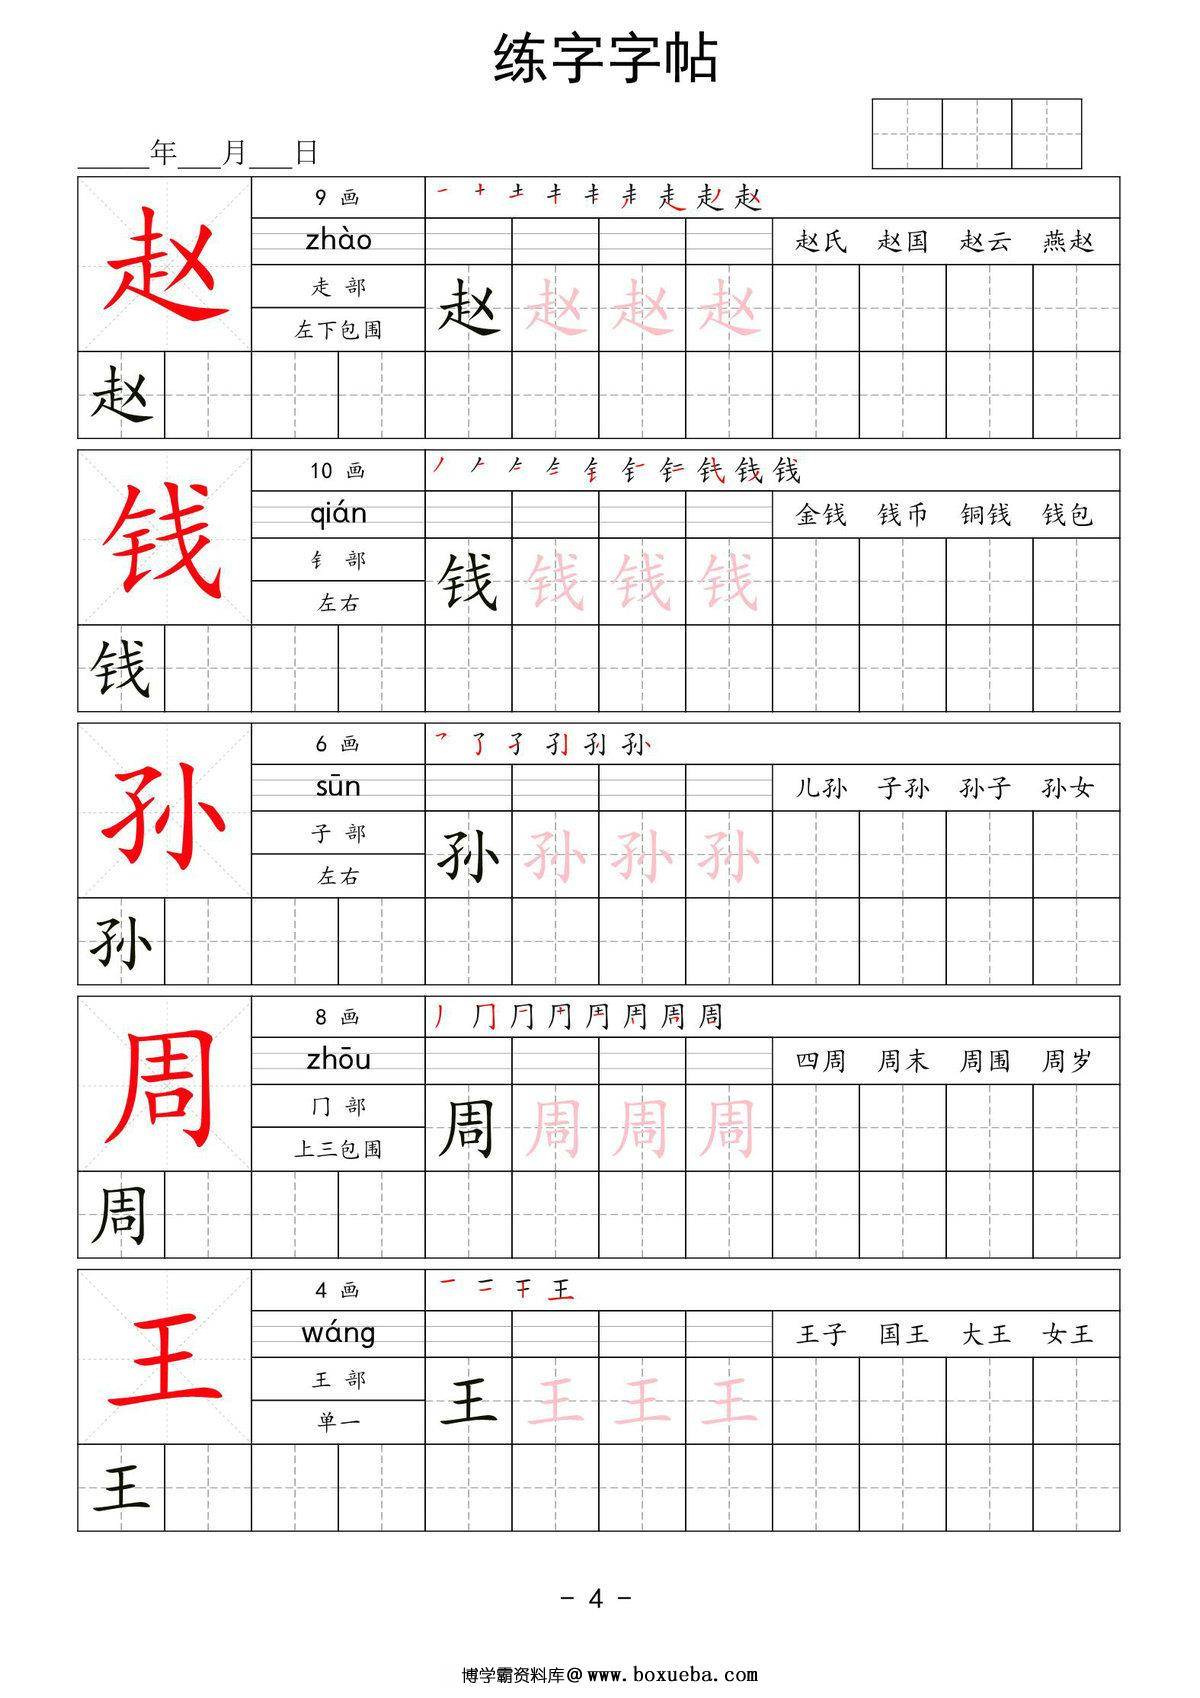 练字字帖
_____年___月___日
赵
9 画
zhào
走 部
左下包围
赵氏 赵国 赵云 燕赵
赵 赵 赵 赵
赵
钱
10 画
qián
钅 部
左右
金钱 钱币 铜钱 钱包
钱 钱 钱 钱
钱
孙
6 画
sūn
子 部
左右
儿孙 子孙 孙子 孙女
孙 孙 孙 孙
孙
周
8 画
zhōu
冂 部
上三包围
四周 周末 周围 周岁
周 周 周 周
周
王
4 画
wáng
王 部
单一
王子 国王 大王 女王
王 王 王 王
王
- 4 -
博学霸资料库@www.boxueba.com